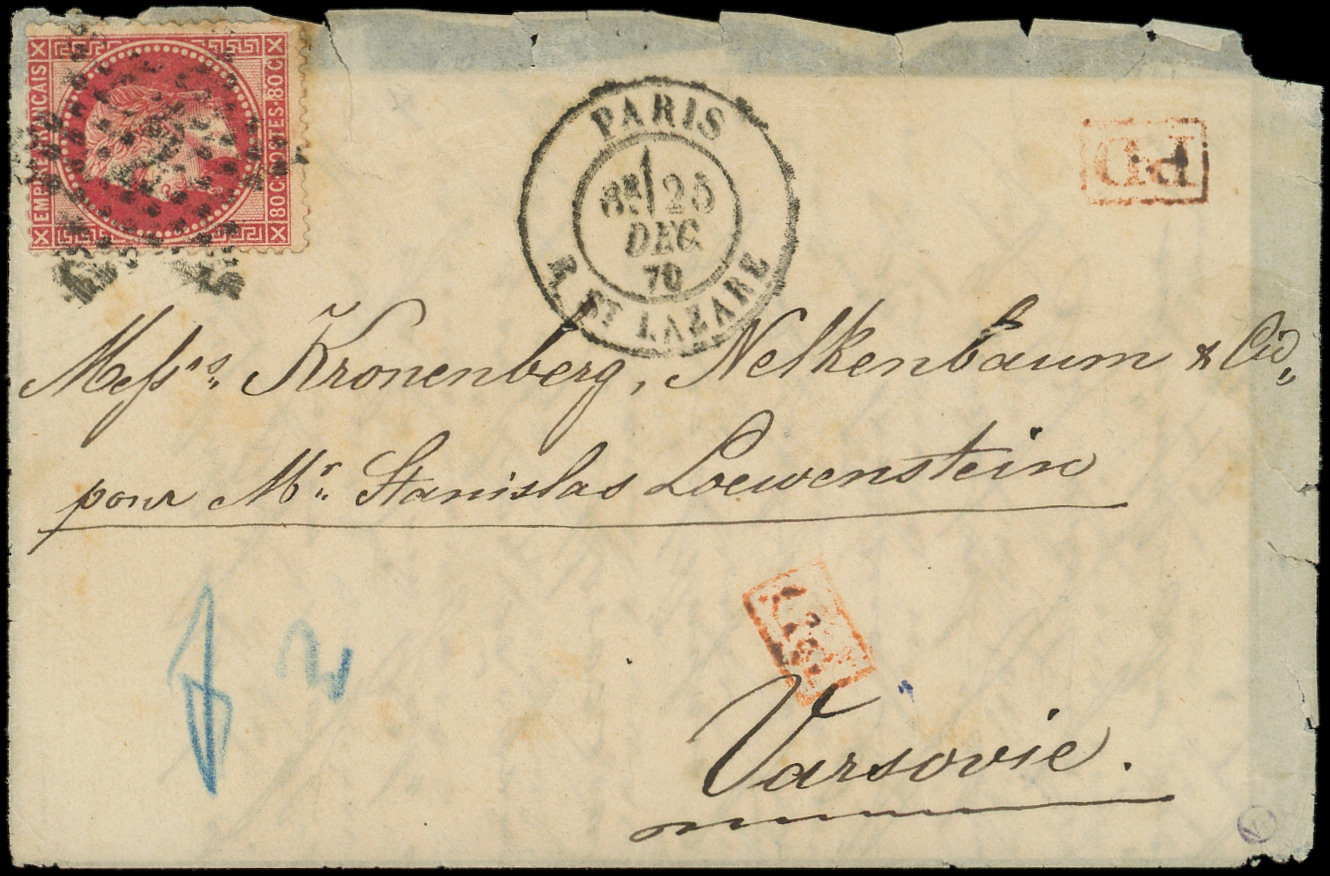 EMPIRE FRANÇAIS
80 C. POSTES. 80 C.
PARIS
25
DEC
70
R. ST LAZARE
PD
Messrs. Kronenberg, Nelkenbaum & Co,
pour Mr. Stanislas Loewenstein
2
Varsovie.